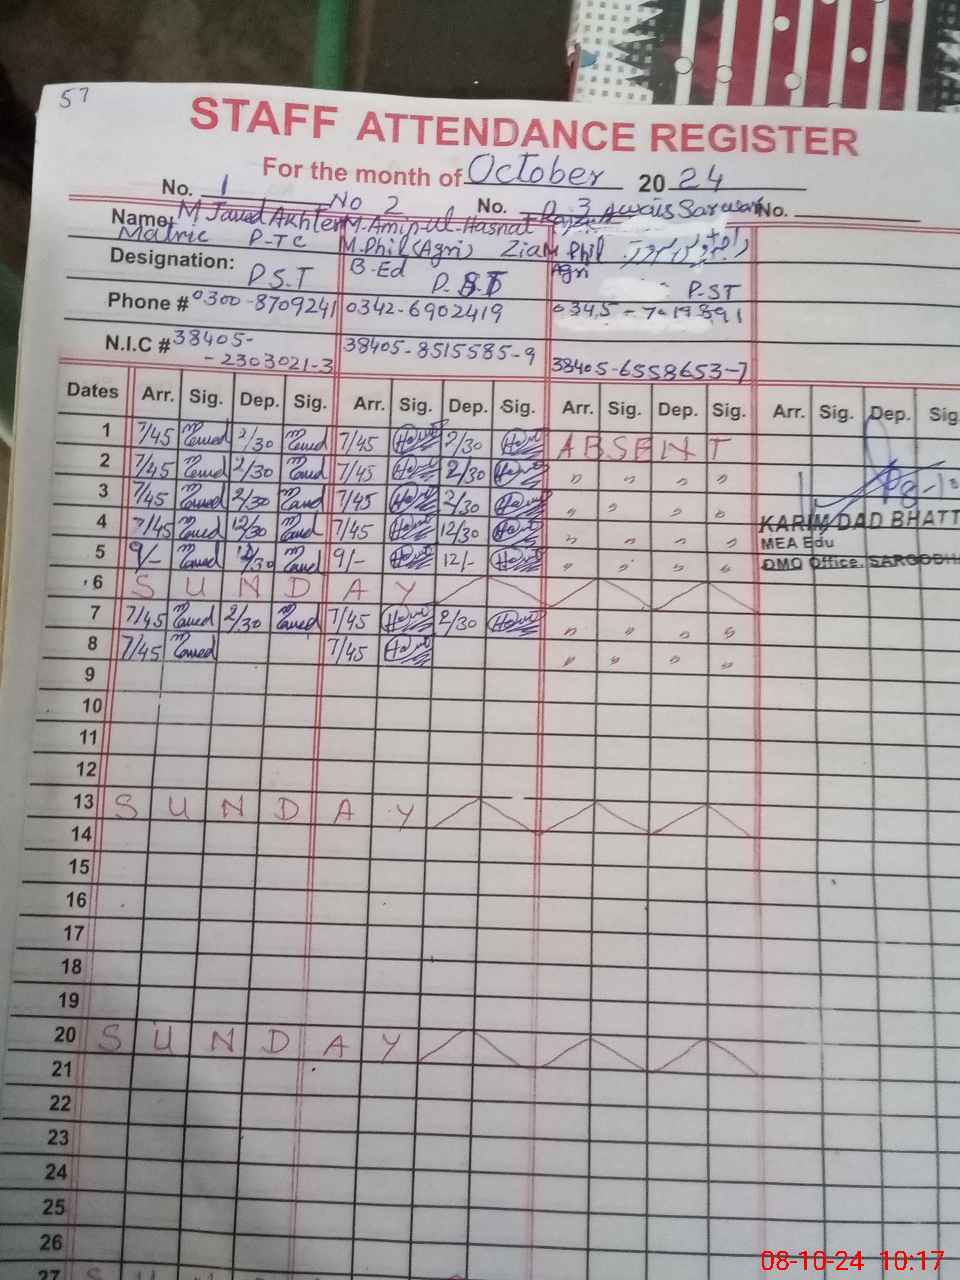 57
STAFF ATTENDANCE REGISTER
For the month of October 2024
No. 1 No 2 No. 3 No.
Name: M Javed Akhter M. Amin-ul-Hasnat Awais Sarwar
Matric P-TC M.Phil (Agri) Zia M Phil
Agri
Designation: P.S.T B-Ed P.S.T P-ST
Phone # 0300-8709241 0342-6902419
N.I.C # 38405- 38405-8515585-9 38405-6558653-7
-2303021-3
Dates Arr. Sig. Dep. Sig. Arr. Sig. Dep. Sig. Arr. Sig. Dep. Sig. Arr. Sig. Dep. Sig.
1 7/45 2/30 7/45 2/30 ABSENT
2 7/45 2/30 7/45 2/30 " " " "
3 7/45 2/30 7/45 2/30 " " " "
4 7/45 12/30 7/45 12/30 " " " "
KARIM DAD BHATT
5 9/- 9/- 12/- " " " "
MEA Edu
DMO Office, SARGODH
6 SUNDAY
7 7/45 2/30 7/45 2/30 " " " "
8 7/45 7/45 " " " "
9
10
11
12
13 SUNDAY
14
15
16
17
18
19
20 SUNDAY
21
22
23
24
25
26
27 S U N D A Y
08-10-24 10:17